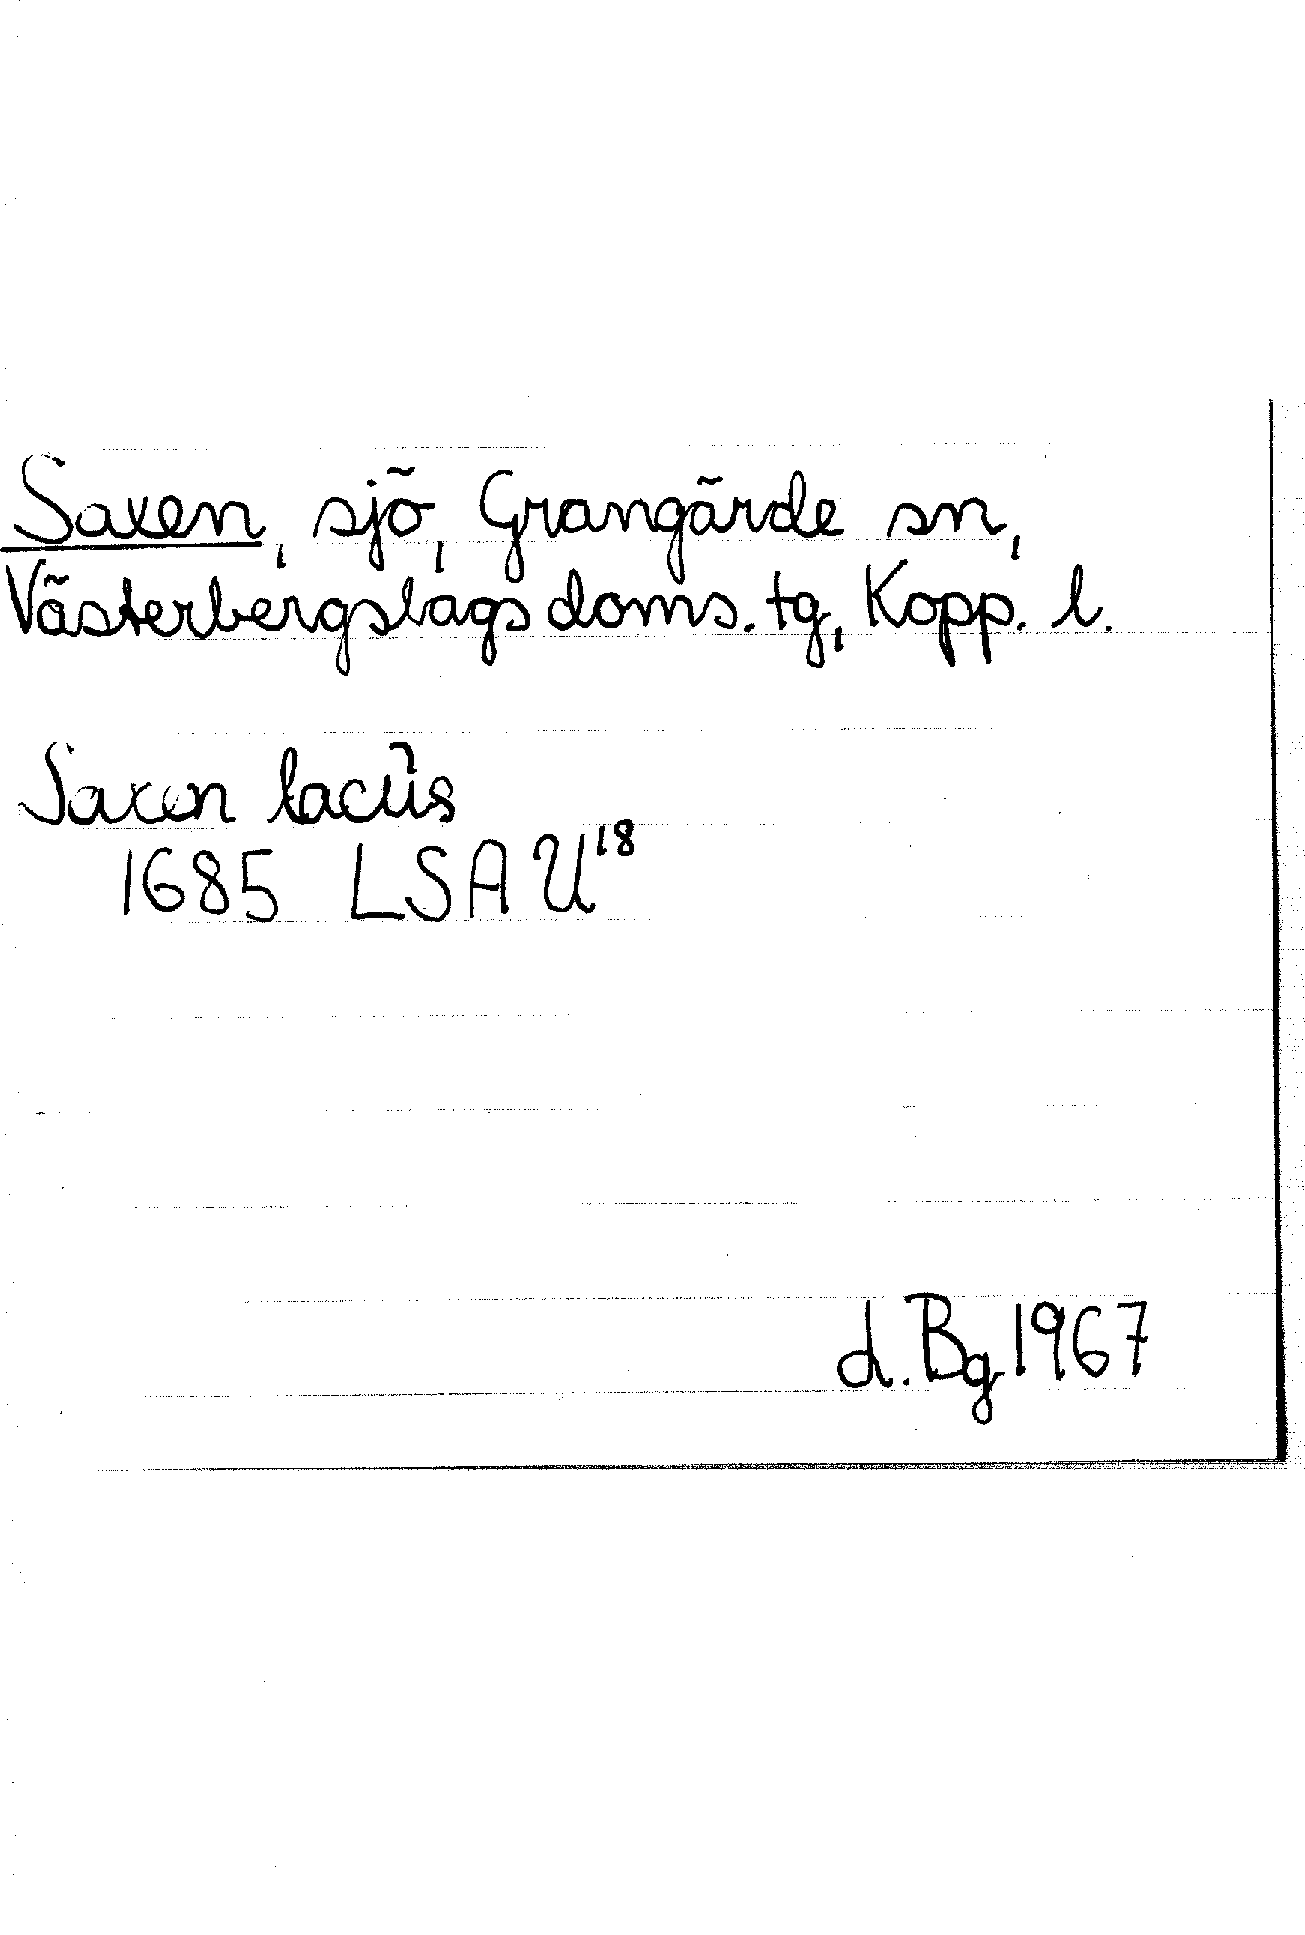 Saxen, sjö, Grangärde sn,
Västerbergslags doms. tg, Kopp. l.
Saxen lacus
1685 LSA U¹⁸
d. Bg 1967